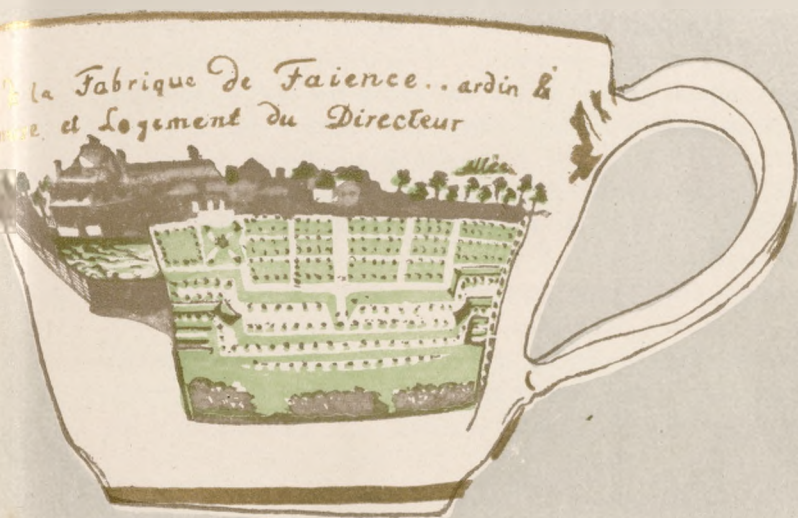 la Fabrique de Faience.. ardin &
et Logement du Directeur